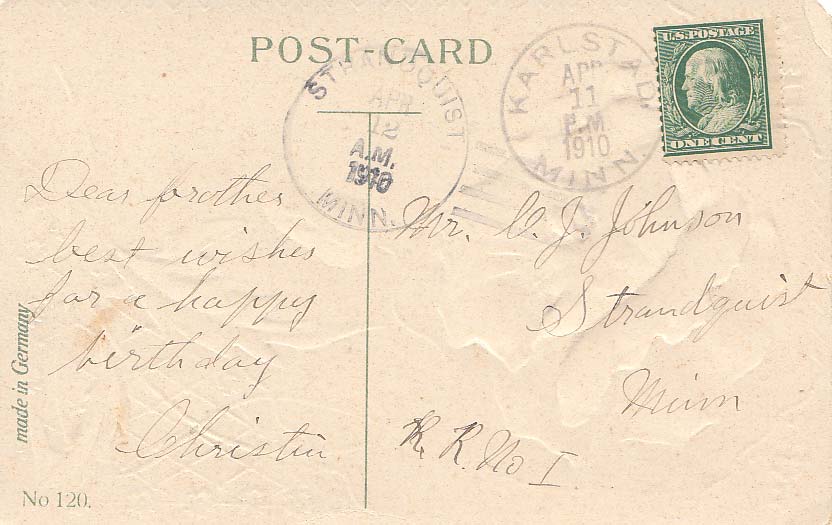 POST-CARD
STRANDQUIST
APR
12
A.M.
1910
MINN.
KARLSTAD.
APR
11
P.M
1910
MINN.
U.S. POSTAGE
ONE CENT
Dear brother
best wishes
for a happy
birthday
Christin
Mr. C. J. Johnson
Strandquist
Minn
R. R. No I
made in Germany
No 120.